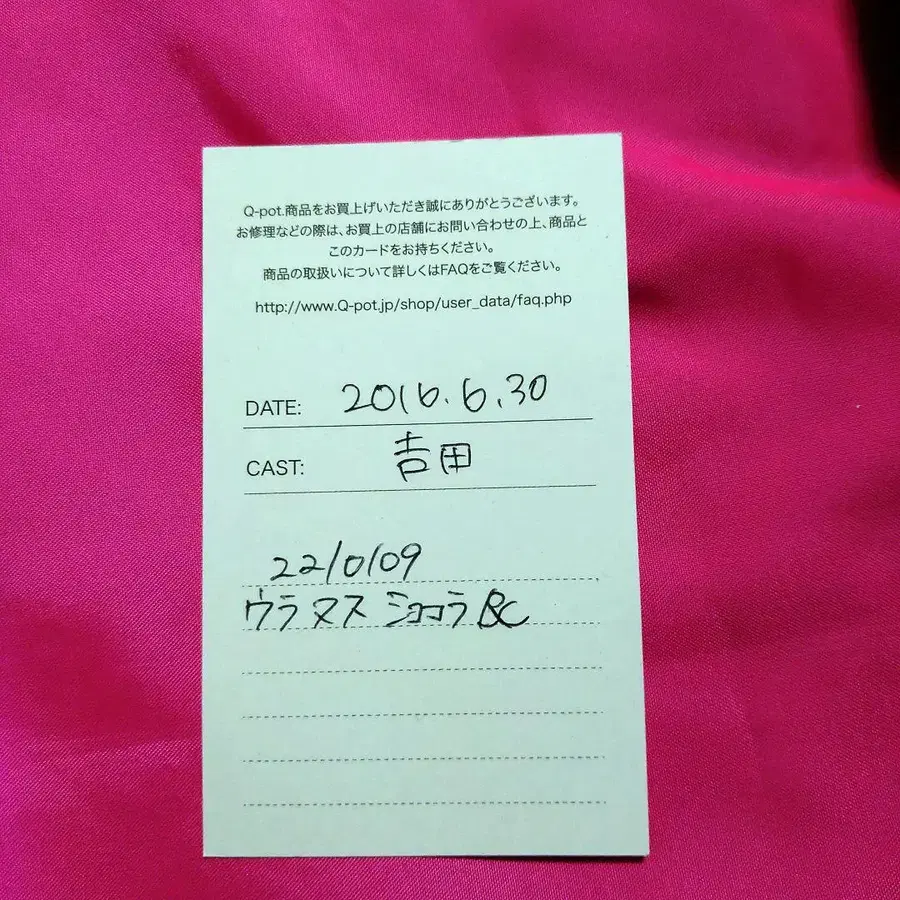 Q-pot.商品をお買上げいただき誠にありがとうございます。
お修理などの際は、お買上の店舗にお問い合わせの上、商品と
このカードをお持ちください。
商品の取扱いについて詳しくはFAQをご覧ください。
http://www.Q-pot.jp/shop/user_data/faq.php
DATE: 2016.6.30
CAST: 吉田
2210109
ウラヌス ショコラ BC